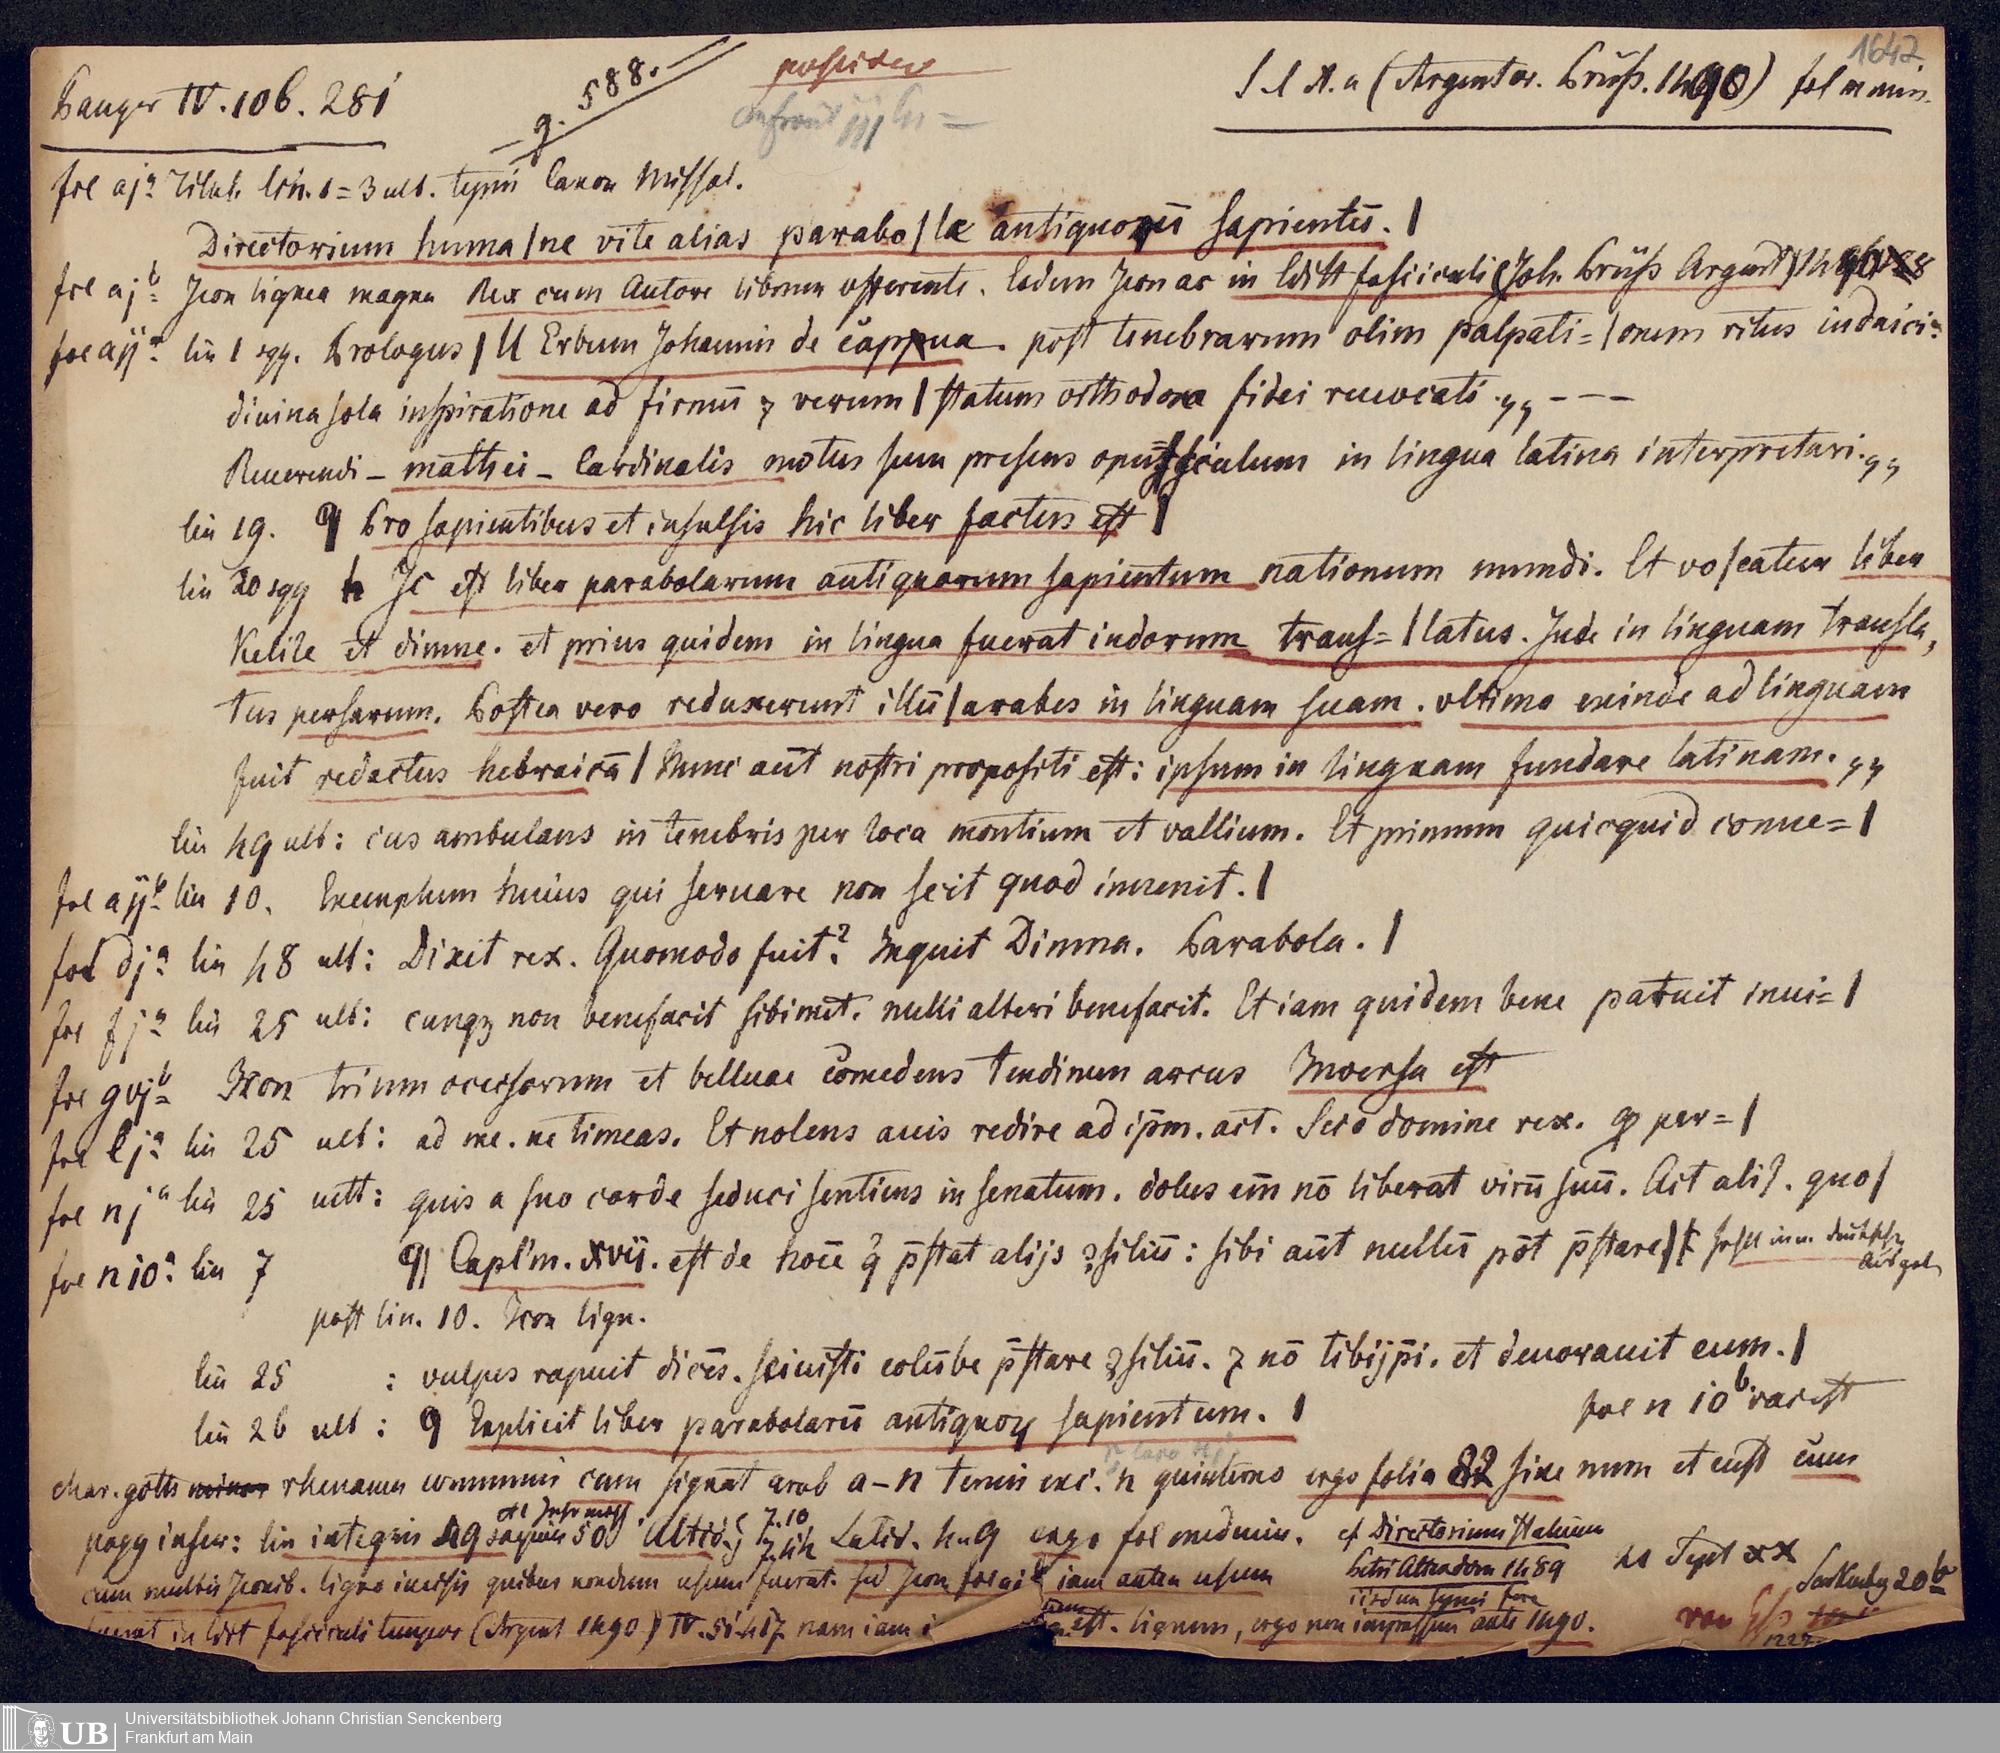 1647
Panzer IV. 106. 281
g. 588.
possideo
S. l. A. a (Argentor. Prüss. 1490) fol min.
fol aj a Titul. lin. 1 = 3 ult. typis Canon Missal.
Directorium huma|ne vite alias parabo|le antiquorū sapientū. |
fol aj b Icon lignea magna Rex cum Autore librum offerente. Eadem Icon ac in Edit fasciculi (Joh. Prüss Argent)
fol aij a lin 1 sqq. Prologus | U Erbum Johannis de cappua. post tenebrarum olim palpati= | onem ritus iudaici.
diuina sola inspiratione ad firmū ⁊ verum | statum orthodoxa fidei reuocati. ⁊⁊ - - -
Reuerendi - mathei - Cardinalis motus sum presens opusculum in lingua latina interpretari. ⁊⁊
lin 19. ¶ Pro sapientibus et insulsis hic liber factus est |
lin 20 sqq h Ic est liber parabolarum antiquorum sapientum nationum mundi. Et vo|catur liber
Kelile et dimne. et prius quidem in lingua fuerat indorum trans= | latus. Inde in linguam transla,
tus persarum. Postea vero reduxerunt illū | arabes in linguam suam. vltimo exinde ad linguam
fuit redactus hebraicā | Nunc aūt nostri propositi est: ipsum in linguam fundare latinam. ⁊⁊
lin 49 ult: cus ambulans in tenebris per loca montium et vallium. Et primum quicquid conue= |
fol aij b lin 10. Exemplum huius qui seruare non scit quod inuenit. |
fol dj a lin 48 ult: Dixit rex. Quomodo fuit? Inquit Dimna. Parabola. |
fol fj a lin 25 ult: cunqꝫ non benefacit sibimet. nulli alteri benefacit. Et iam quidem bene patuit inui= |
fol gvj b Icon trium occisorum et belluae comedens tendinem arcus Inversa est
fol lj a lin 25 ult: ad me. ne timeas. Et nolens auis redire ad ip̄m. ait. Scio domine rex. ꝙ per= |
fol nj a lin 25 ult: quis a suo corde seduci sentiens in senatum. dolus em̄ nō liberat virū suū. Ait ali?. quo |
fol n 10 a lin 7 ¶ Capl'm. xvij. est de hoīe q̄ p̄stat alijs ꝯsiliū: sibi aūt nullū pōt p̄stare |
post lin. 10. Icon lign.
lin 25 : vulpes rapuit dicēs. sciuisti colūbe p̄stare ꝯsiliū. ⁊ nō tibijp̄i. et deuorauit eum. |
lin 26 ult : ¶ Explicit liber parabolarū antiquoꝝ sapientum. | fol n 10 b vac est
char. goth rhenanus communis cum signat arab a-n ternis exc. n quinterno ergo folia 82 sine num et cust cum
pagg infer: lin integris 49 saepius 50 Altid. 7.10 Latid. 4-9 ergo fol medium.
cf Directorium statuum
Petri Attendorn 1489
iisdem typis fere
Ht Typ xx
cum multis Iconib. ligno incisis quibus nondum usum fuerat. sed Icon fol aj b iam antea usum
est. lignum, ergo non impressum ante 1490.
fuerat in Edit fasciculi temporis (Argent 1490) nam iam
Universitätsbibliothek Johann Christian Senckenberg
Frankfurt am Main
UB